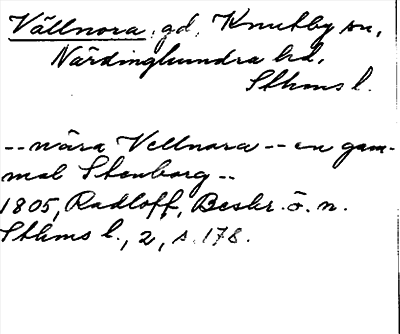 Vällnora, gd, Knutby sn,
Närdinghundra hd,
Sthms l.
-- nära Vellnora -- en gam-
mal Stenborg --
1805, Radloff, Beskr. ö. n.
Sthms l., 2, s. 178.